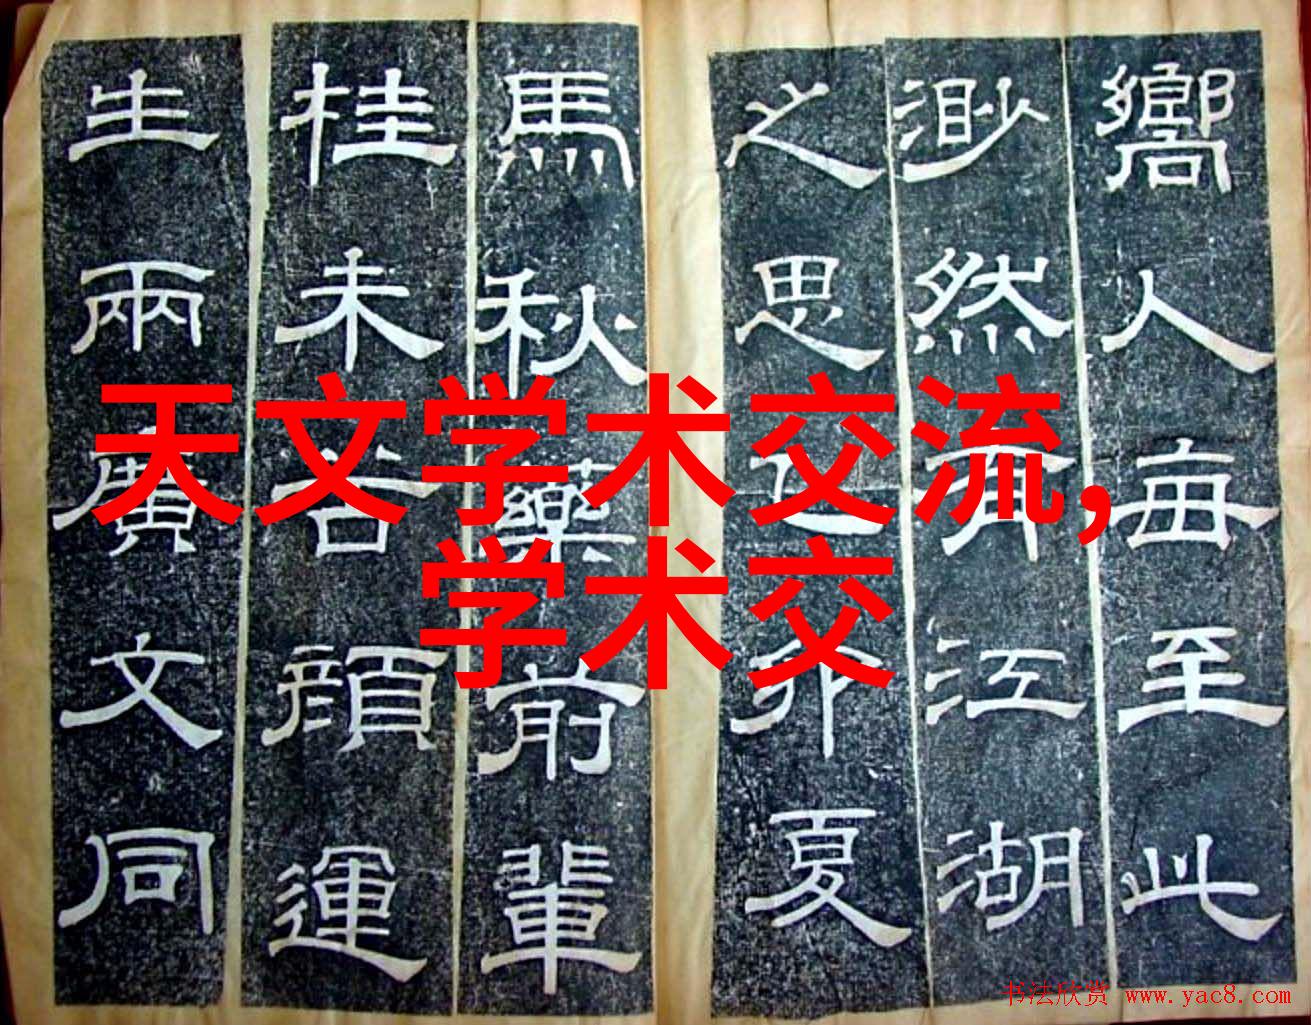 嚮人每至此
渺然有江湖
之思己卯夏
馬秋藥前輩
桂未谷顔運
生兩廣文同
天文学术交流,
学术交
书法欣赏 www.yac8.com